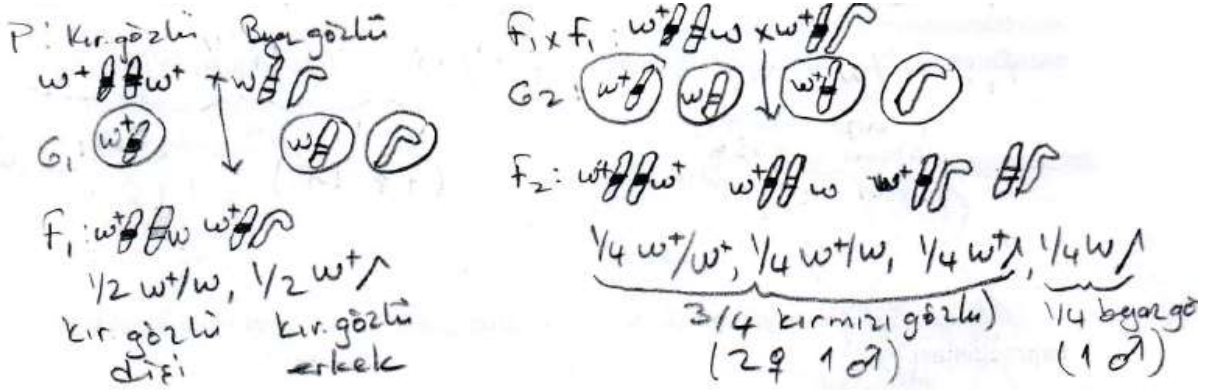 P: Kır.gözlü Beyaz gözlü
w⁺ w⁺ x w
G₁: w⁺ w
F₁: w⁺ w w⁺
1/2 w⁺/w, 1/2 w⁺/
kır.gözlü kır.gözlü
dişi erkek
F₁ x F₁: w⁺ w x w⁺
G₂: w⁺ w w⁺
F₂: w⁺ w⁺ w⁺ w w⁺
1/4 w⁺/w⁺, 1/4 w⁺/w, 1/4 w⁺/, 1/4 w/
3/4 kırmızı gözlü) 1/4 beyaz gö
(2♀ 1♂) (1♂)